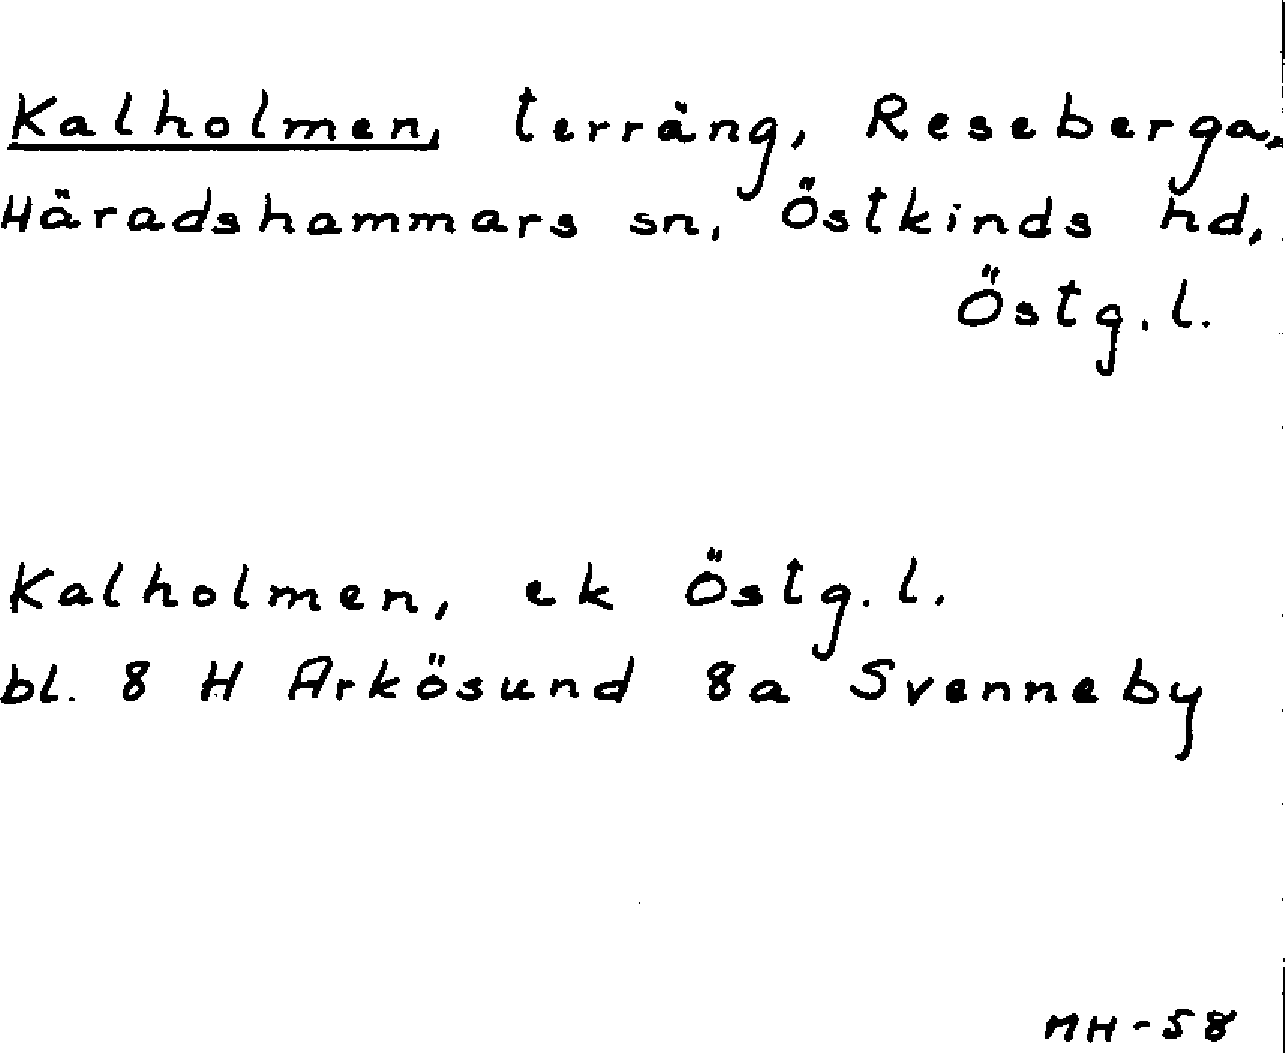 Kalholmen, terräng, Reseberga,
Häradshammars sn, Östkinds hd,
Östg.l.
Kalholmen, ek Östg.l.
bl. 8 H Arkösund 8a Svenneby
MH-58